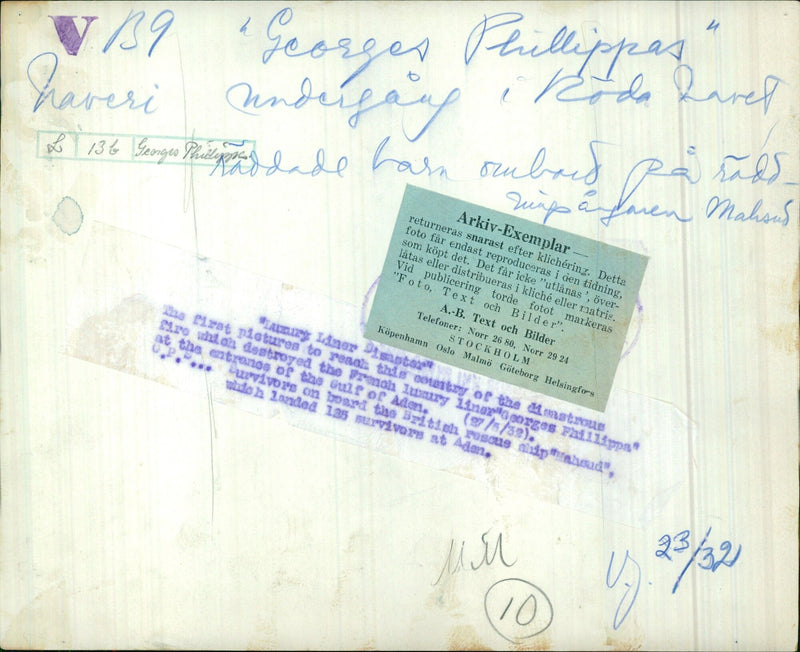 V B9 "Georges Phillippas"
Haveri undergång i Röda Havet
L 13b Georges Phillippa
Räddade barn ombord på rädd-
ningsångaren Mahsud
Arkiv-Exemplar
returneras snarast efter klichéring. Detta
foto får endast reproduceras i den tidning,
som köpt det. Det får icke "utlånas", över-
låtas eller distribueras i kliché eller matris.
Vid publicering torde fotot markeras
"Foto, Text och Bilder".
A.-B. Text och Bilder
Telefoner: Norr 26 80, Norr 29 24
STOCKHOLM
Köpenhamn Oslo Malmö Göteborg Helsingfors
"Luxury Liner Disaster"
The first pictures to reach this country of the disastrous
fire which destroyed the French luxury liner"Georges Phillippa"
at the entrance of the Gulf of Aden. (27/5/32).
O.P.S... Survivors on board the British rescue ship"Mahsud",
which landed 125 survivors at Aden.
V.J. 23/32
10